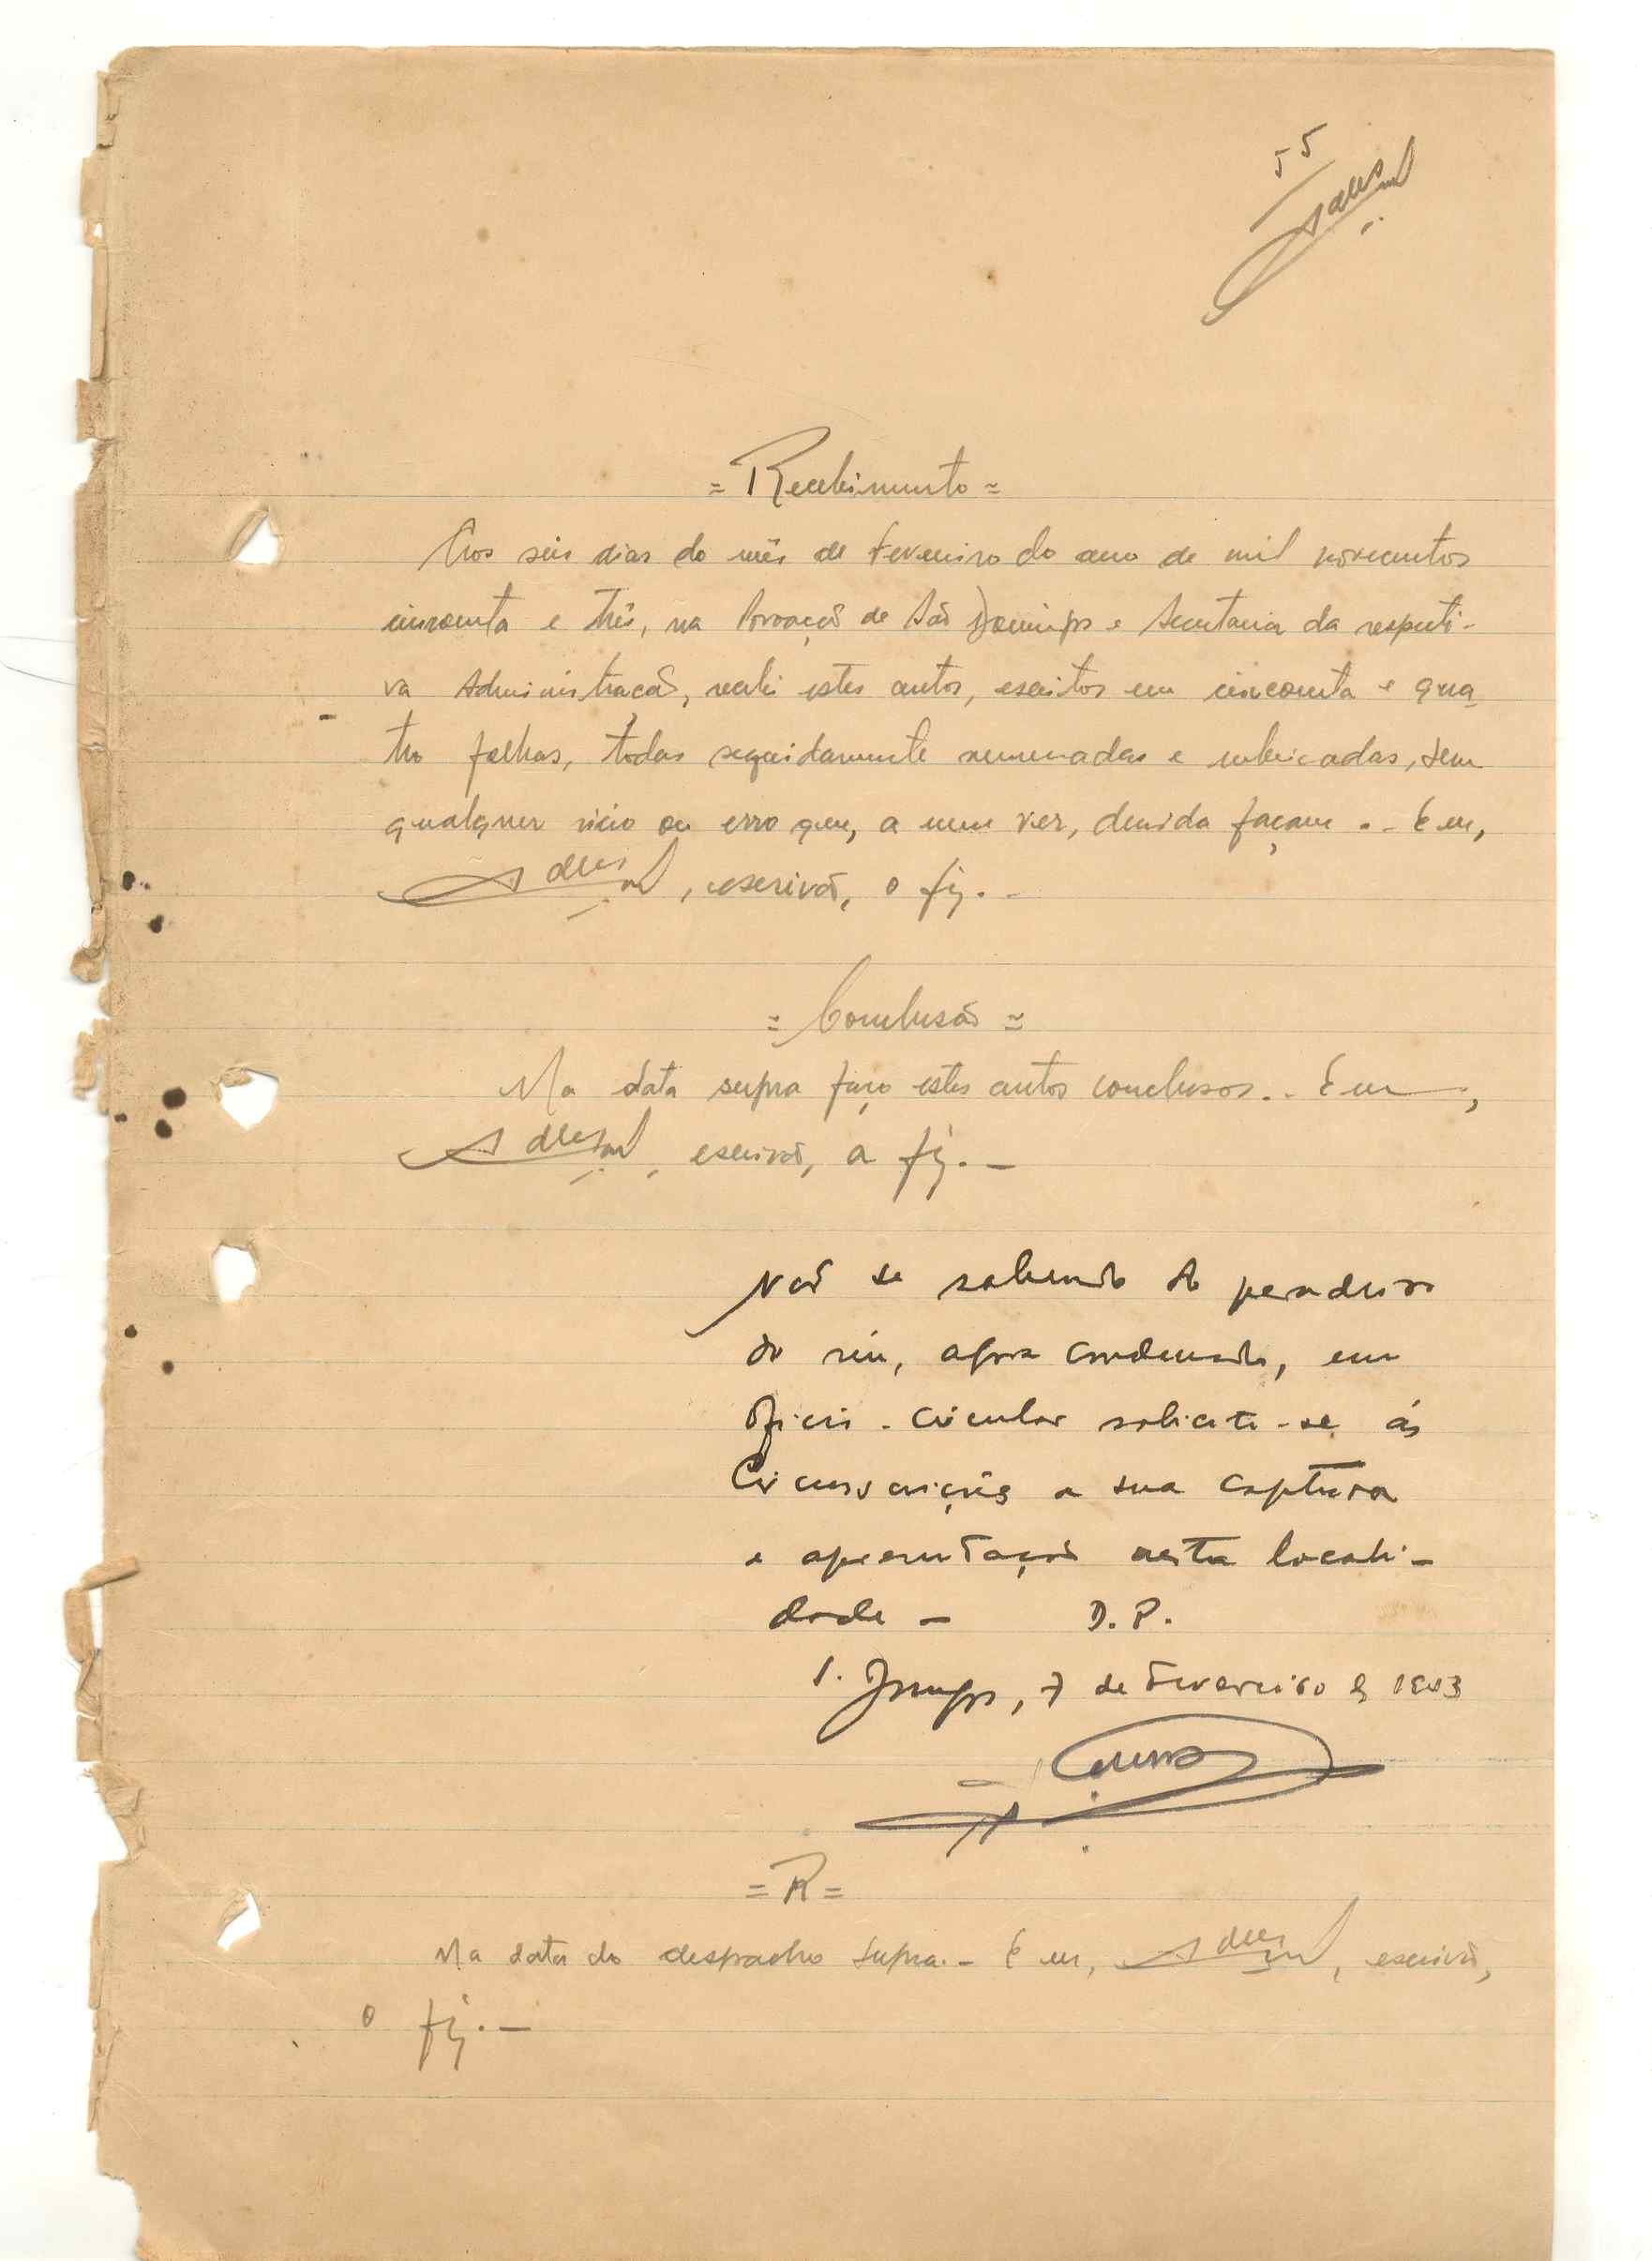 55
= Recebimento =
Aos seis dias do mês de Fevereiro do ano de mil novecentos
cincoenta e três, na Povoação de São Domingos e Secretaria da respecti-
va Administração, recebi estes autos, escritos em cincoenta e qua
tro folhas, todas seguidamente numeradas e rubricadas, sem
qualquer vicio ou erro que, a meu ver, duvida façam .- E eu,
, escrivão, o fiz.-
= Conclusão =
Na data supra faço estes autos conclusos.- E eu,
, escrivão, o fiz.-
Não se sabendo do paradeiro
do réu, agora condenado, em
oficio-circular solicite-se ás
Circunscrições a sua captura
e apresentação nesta locali-
dade - D. P.
S. Domingos, 7 de Fevereiro de 1953
= R =
Na data do despacho supra.- E eu, , escrivão,
o fiz.-